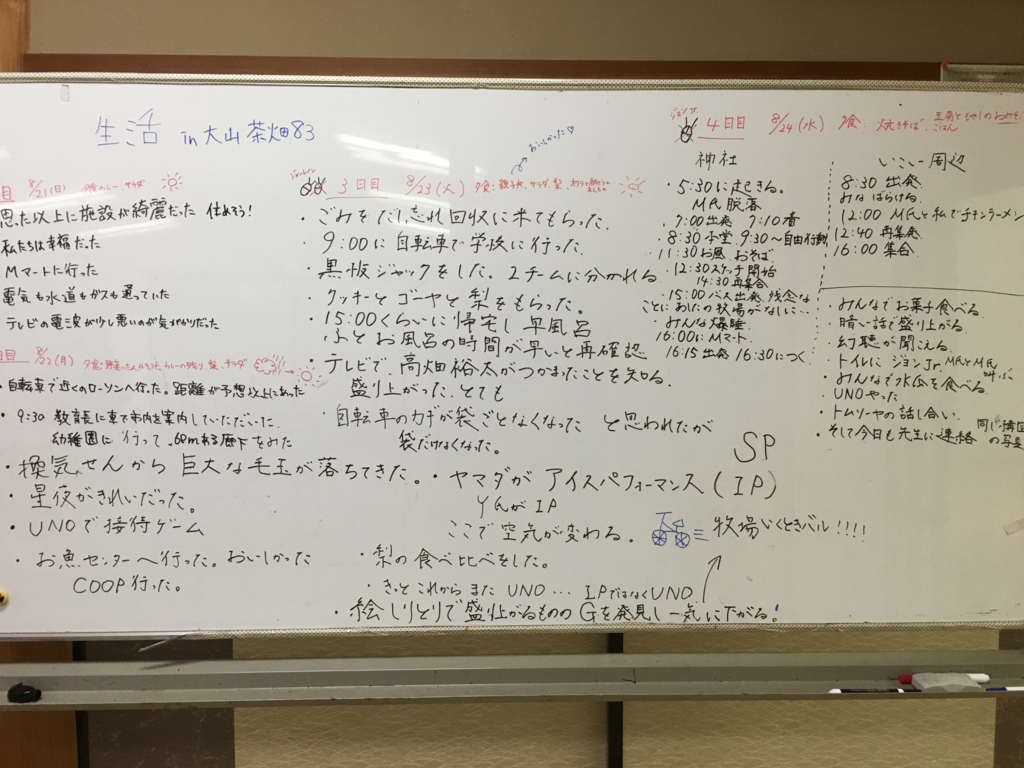 生活 in 大山 茶畑83
目 8/21(日) 夕食カレー、サラダ
思った以上に施設が綺麗だった 住めろう!
私たちは幸福だった
Mマートに行った
電気も水道もガスも通っていた
テレビの電波が少し悪いのが気がかりだった
目 8/22(月)
・自転車で近くのローソンへ行った。距離が予想以上にあった
・9:30 教育長に車で市内を案内していただいた。
幼稚園に行って、60mある廊下をみた
・換気せんから巨大な毛玉が落ちてきた。
・星夜がきれいだった。
・UNOで接待ゲーム
・お魚センターへ行った。おいしかった
COOP行った。
3日目 8/23(火) 夕食:親子丼、サラダ、梨
おいしかった♡
・ごみをだし忘れ回収に来てもらった。
・9:00に自転車で学校に行った。
・黒板ジャックをした。2チームに分かれる
・クッキーとゴーヤと梨をもらった。
・15:00くらいに帰宅し早風呂
ふとお風呂の時間が早いと再確認
・テレビで、高畑裕太がつかまったことを知る。
盛り上がった、とても
・自転車のカギが袋ごとなくなった と思われたが
袋だけなくなった。
・ヤマダが アイスパフォーマンス(IP)
YんがIP
SP
ここで空気が変わる。
牧場いくときバル!!!!
・梨の食べ比べをした。
・きっとこれからまた UNO… IPではなくUNO
・絵しりとりで盛り上がるものの Gを発見し一気に下がる!
ジョンJr.
4日目 8/24(水) 夕食: 焼きそば、
ごはん
神社
・5:30に起きる。
M氏 脱落
・7:00出発 7:10着
・8:30 本堂 9:30〜自由行動
・11:30お風呂、おそば
・12:30スケッチ開始
14:30再集合
・15:00バス出発 残念な
ことにわしの牧場がなしに…
・みんな爆睡
・16:00にMマート
・16:15 出発 16:30につく
いこいー周辺
8:30 出発
みなばらける
12:00 M氏と私でチキンラーメン
12:40 再集発
16:00 集合
・みんなでお菓子食べる
・暗い話で盛り上がる
・幻聴が聞える
・トイレに ジョンJr. M氏とM氏
・みんなで水瓜を食べる
・UNOやった
・トムソーヤの話し合い
・そして今日も先生に連絡 同じ構図の写真